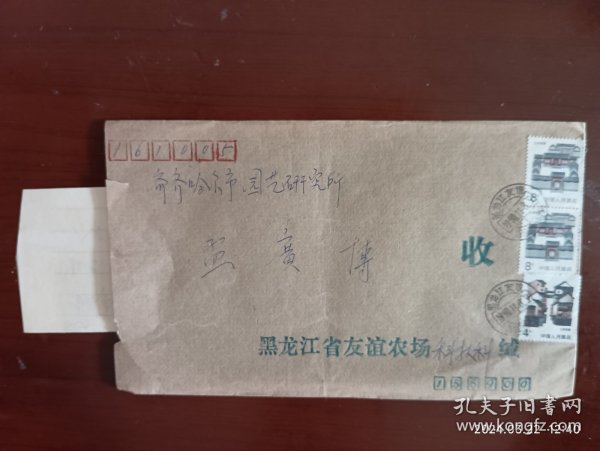 161005
齐齐哈尔市园艺研究所
廣 博
收
黑龙江省友谊农场科技科缄
8分
中国人民邮政
8分
中国人民邮政
4分
中国人民邮政
孔夫子旧书网
www.kongfz.com
2024.05.22 12:40